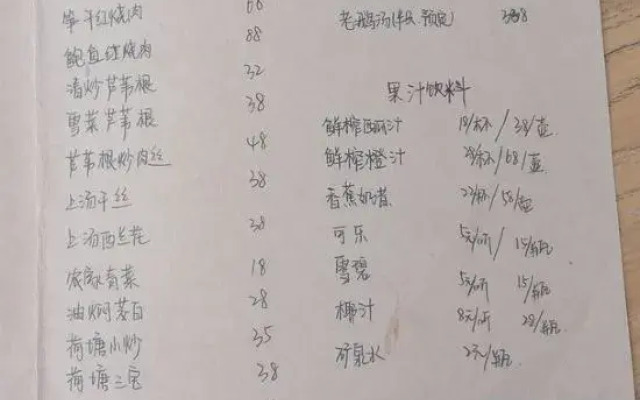 笋干红烧肉 68
鲍鱼红烧肉 88
清炒芦苇根 32
雪菜芦苇根 38
芦苇根炒肉丝 48
上汤干丝 38
上汤西兰花 38
农家青菜 18
油焖茭白 28
荷塘小炒 35
荷塘三宝 38
老鹅汤 预定)
果汁饮料
鲜榨西瓜汁 18/杯/38/壶
鲜榨橙汁 28/杯/68/壶
香蕉奶昔 22/杯/58/壶
可乐 5元/听/15/瓶
雪碧 5元/听 15/瓶
椰汁 8元/听 28/瓶
矿泉水 2元/瓶